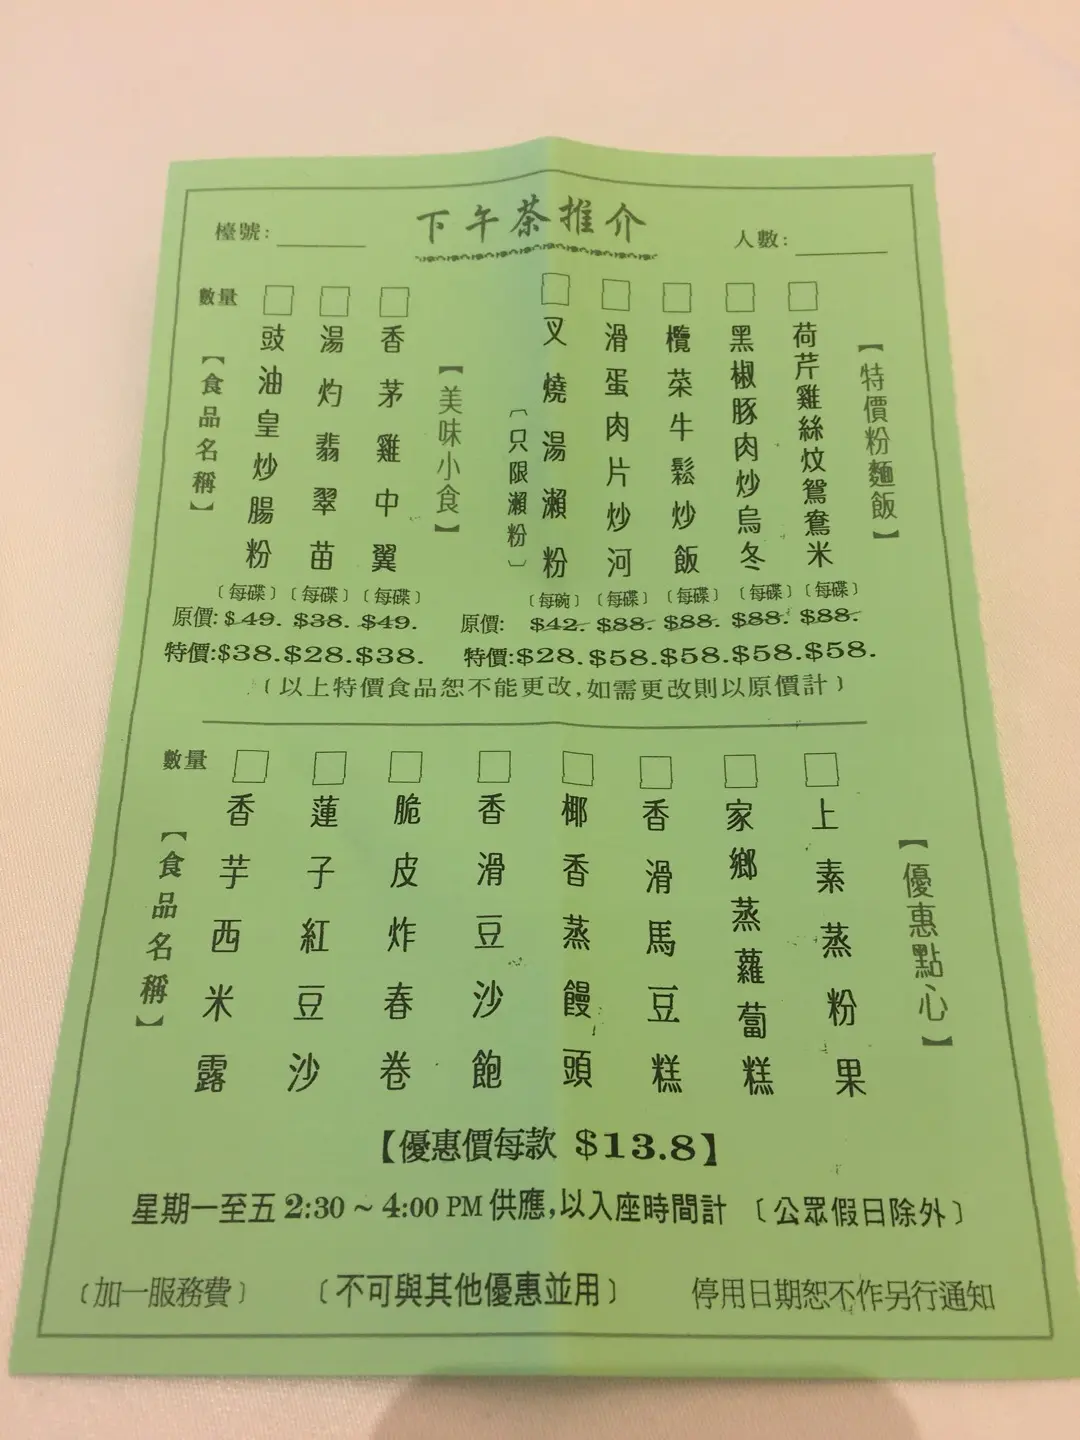 下午茶推介
檯號:
人數:
【特價粉麵飯】
荷芹雞絲炆鴛鴦米
黑椒豚肉炒烏冬
欖菜牛鬆炒飯
滑蛋肉片炒河
叉燒湯瀨粉
〔只限瀨粉〕
【美味小食】
香茅雞中翼
湯灼翡翠苗
豉油皇炒腸粉
數量
【食品名稱】
〔每碟〕〔每碟〕〔每碟〕 〔每碗〕〔每碟〕〔每碟〕〔每碟〕〔每碟〕
原價: $49. $38. $49. 原價: $42. $88. $88. $88. $88.
特價:$38.$28.$38. 特價:$28.$58.$58.$58.$58.
〔以上特價食品恕不能更改,如需更改則以原價計〕
【優惠點心】
上素蒸粉果
家鄉蒸蘿蔔糕
香滑馬豆糕
椰香蒸饅頭
香滑豆沙飽
脆皮炸春卷
蓮子紅豆沙
香芋西米露
數量
【食品名稱】
【優惠價每款 $13.8】
星期一至五 2:30 ~ 4:00 PM 供應,以入座時間計 〔公眾假日除外〕
〔加一服務費〕 〔不可與其他優惠並用〕 停用日期恕不作另行通知